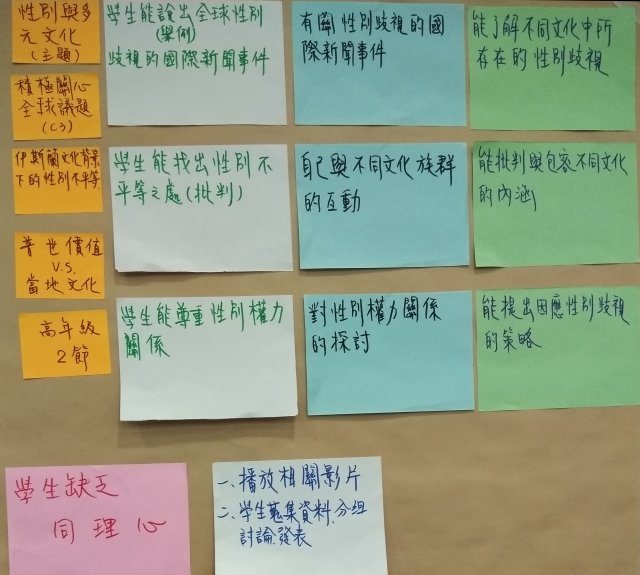 性別與多
元文化
(主題)
積極關心
全球議題
(C3)
伊斯蘭文化背景
下的性別不平等
普世價值
V.S.
當地文化
高年級
2節
學生能說出全球性別
(舉例)
歧視的國際新聞事件
學生能找出性別不
平等之處(批判)
學生能尊重性別權力
關係
有關性別歧視的國
際新聞事件
自己與不同文化族群
的互動
對性別權力關係
的探討
能了解不同文化中所
存在的性別歧視
能批判與包容不同文化
的內涵
能提出因應性別歧視
的策略
學生缺乏
同理心
一、播放相關影片
二、學生蒐集資料、分組
討論、發表